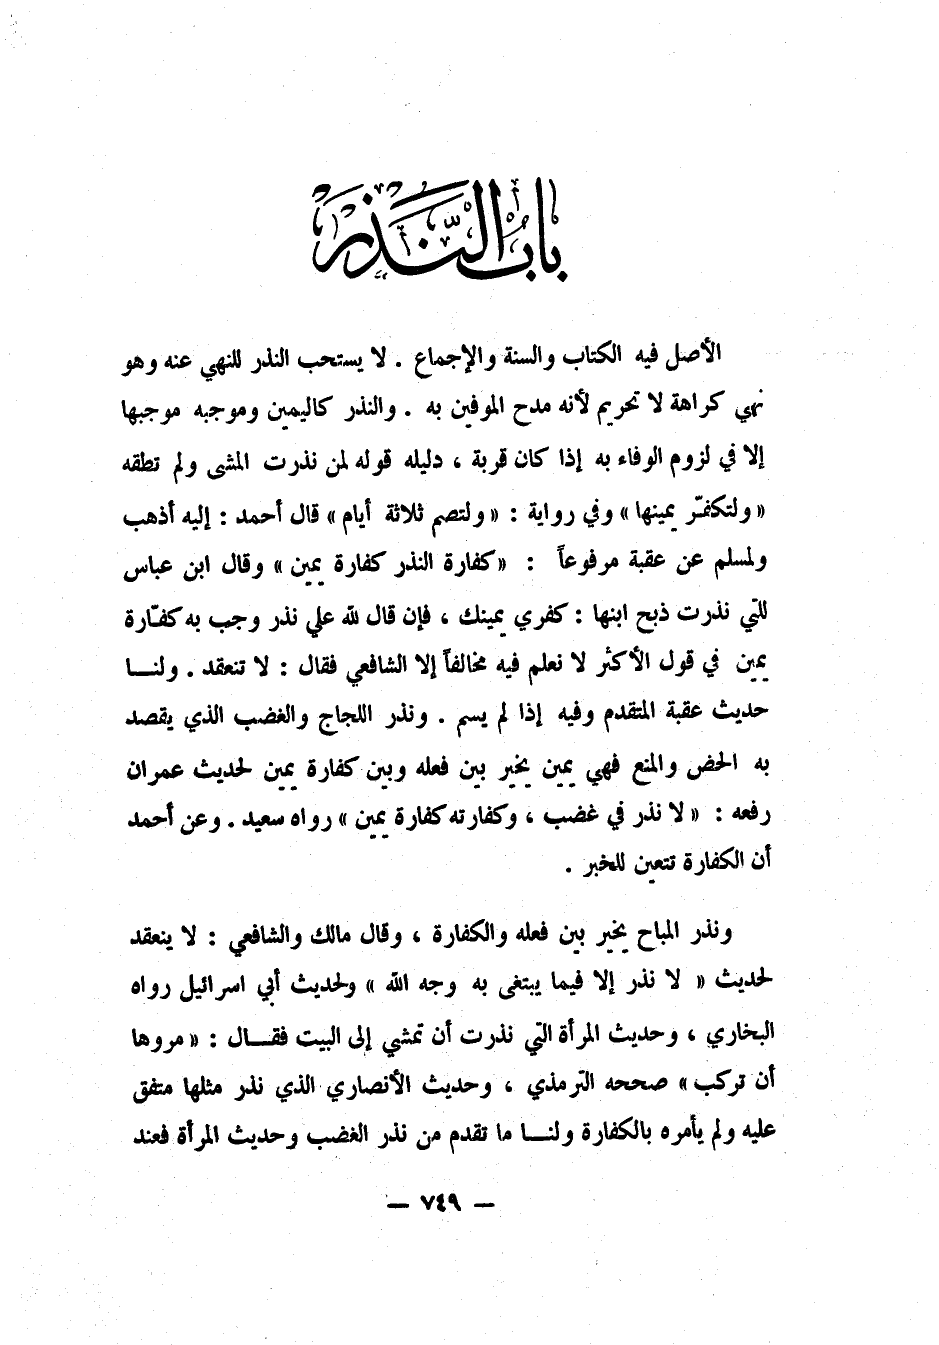 بَابُ النَّذْرِ
الأصل فيه الكتاب والسنة والإجماع . لا يستحب النذر للنهي عنه وهو
نهي كراهة لا تحريم لأنه مدح الموفين به . والنذر كاليمين وموجبه موجبها
إلا في لزوم الوفاء به إذا كان قربة ، دليله قوله لمن نذرت المشى ولم تطقه
« ولتكفـّر يمينها » وفي رواية : « ولتصم ثلاثة أيام » قال أحمد : إليه أذهب
ولمسلم عن عقبة مرفوعاً : « كفارة النذر كفارة يمين » وقال ابن عباس
للتي نذرت ذبح ابنها : كفري يمينك ، فإن قال لله علي نذر وجب به كفـّارة
يمين في قول الأكثر لا نعلم فيه مخالفاً إلا الشافعي فقال : لا تنعقد . ولنـــا
حديث عقبة المتقدم وفيه إذا لم يسم . ونذر اللجاج والغضب الذي يقصد
به الحض والمنع فهي يمين يخير بين فعله وبين كفارة يمين لحديث عمران
رفعه : « لا نذر في غضب ، وكفارته كفارة يمين » رواه سعيد . وعن أحمد
أن الكفارة تتعين للخبر .
ونذر المباح يخير بين فعله والكفارة ، وقال مالك والشافعي : لا ينعقد
لحديث « لا نذر إلا فيما يبتغى به وجه الله » ولحديث أبي اسرائيل رواه
البخاري ، وحديث المرأة التي نذرت أن تمشي إلى البيت فقـــال : « مروها
أن تركب » صححه الترمذي ، وحديث الأنصاري الذي نذر مثلها متفق
عليه ولم يأمره بالكفارة ولنـــا ما تقدم من نذر الغضب وحديث المرأة فعند
— ٧٤٩ —